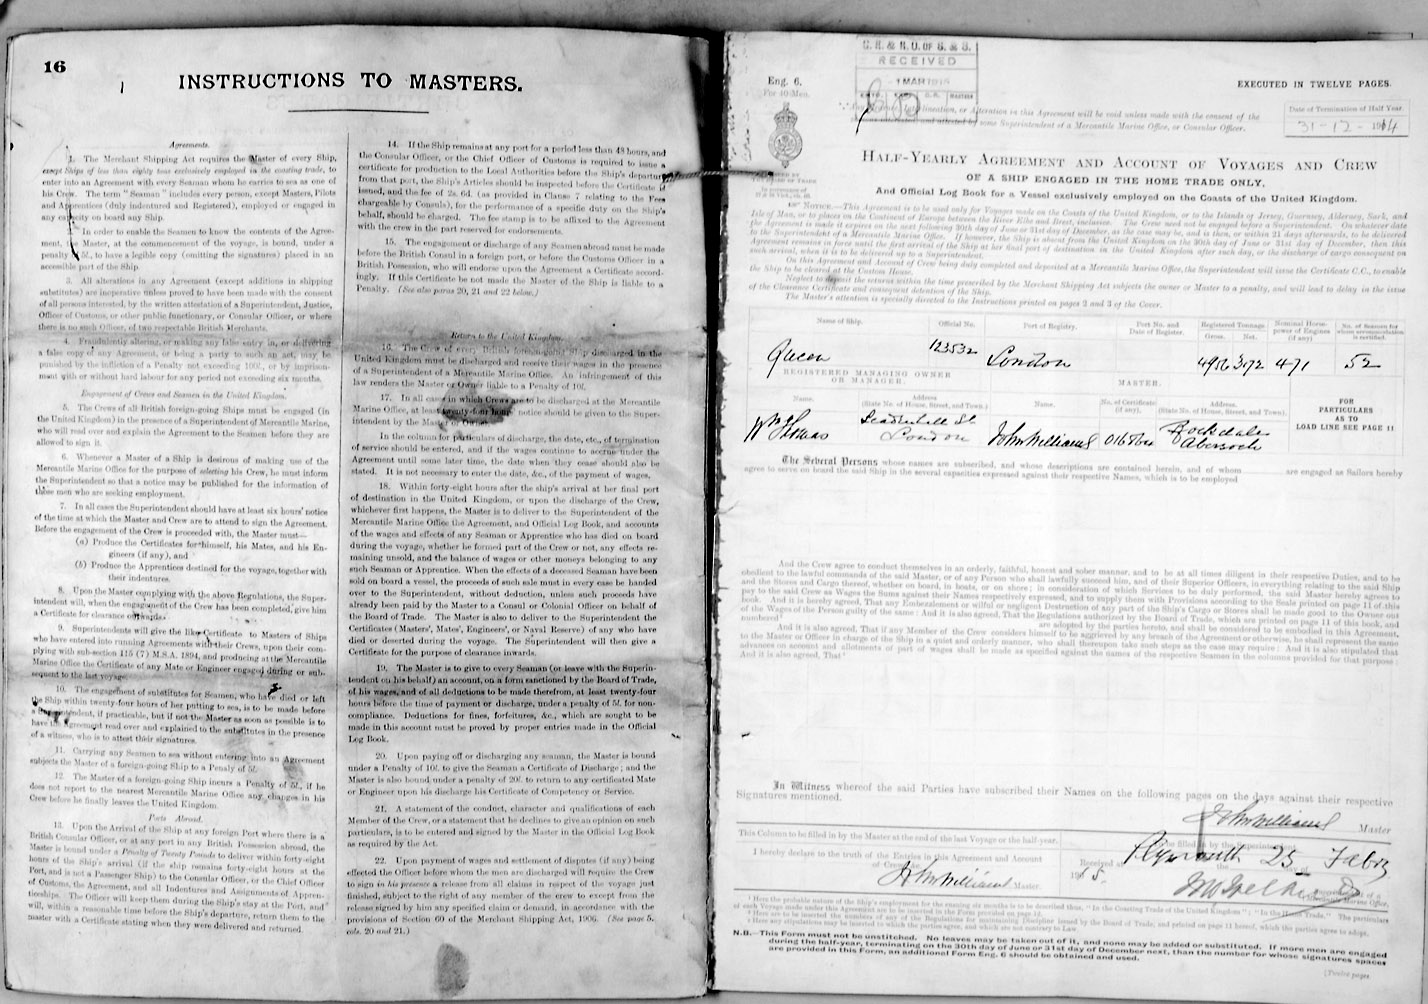 16
INSTRUCTIONS TO MASTERS.
Agreements.
1. The Merchant Shipping Act requires the Master of every Ship,
except Ships of less than eighty tons exclusively employed in the coasting trade, to
enter into an Agreement with every Seaman whom he carries to sea as one of
his Crew. The term "Seaman" includes every person, except Masters, Pilots
and Apprentices (duly indentured and Registered), employed or engaged in
any capacity on board any Ship.
In order to enable the Seamen to know the contents of the Agree-
ment, the Master, at the commencement of the voyage, is bound, under a
penalty of 5l., to have a legible copy (omitting the signatures) placed in an
accessible part of the Ship.
3. All alterations in any Agreement (except additions in shipping
substitutes) are inoperative unless proved to have been made with the consent
of all persons interested, by the written attestation of a Superintendent, Justice,
Officer of Customs, or other public functionary, or Consular Officer, or where
there is no such Officer, of two respectable British Merchants.
4. Fraudulently altering, or making any false entry in, or delivering
a false copy of any Agreement, or being a party to such an act, may be
punished by the infliction of a Penalty not exceeding 100l., or by imprison-
ment with or without hard labour for any period not exceeding six months.
Engagement of Crews and Seamen in the United Kingdom.
5. The Crews of all British foreign-going Ships must be engaged (in
the United Kingdom) in the presence of a Superintendent of Mercantile Marine,
who will read over and explain the Agreement to the Seamen before they are
allowed to sign it.
6. Whenever a Master of a Ship is desirous of making use of the
Mercantile Marine Office for the purpose of selecting his Crew, he must inform
the Superintendent so that a notice may be published for the information of
those men who are seeking employment.
7. In all cases the Superintendent should have at least six hours' notice
of the time at which the Master and Crew are to attend to sign the Agreement.
Before the engagement of the Crew is proceeded with, the Master must—
(a) Produce the Certificates for himself, his Mates, and his En-
gineers (if any), and
(b) Produce the Apprentices destined for the voyage, together with
their indentures.
8. Upon the Master complying with the above Regulations, the Super-
intendent will, when the engagement of the Crew has been completed, give him
a Certificate for clearance outwards.
9. Superintendents will give the like Certificate to Masters of Ships
who have entered into running Agreements with their Crews, upon their com-
plying with sub-section 115 (7) M.S.A. 1894, and producing at the Mercantile
Marine Office the Certificate of any Mate or Engineer engaged during or sub-
sequent to the last voyage.
10. The engagement of substitutes for Seamen, who have died or left
the Ship within twenty-four hours of her putting to sea, is to be made before
a Superintendent, if practicable, but if not the Master as soon as possible is to
have the Agreement read over and explained to the substitutes in the presence
of a witness, who is to attest their signatures.
11. Carrying any Seamen to sea without entering into an Agreement
subjects the Master of a foreign-going Ship to a Penaly of 5l.
12. The Master of a foreign-going Ship incurs a Penalty of 5l., if he
does not report to the nearest Mercantile Marine Office any changes in his
Crew before he finally leaves the United Kingdom.
Ports Abroad.
13. Upon the Arrival of the Ship at any foreign Port where there is a
British Consular Officer, or at any port in any British Possession abroad, the
Master is bound under a Penalty of Twenty Pounds to deliver within forty-eight
hours of the Ship's arrival (if the ship remains forty-eight hours at the
Port, and is not a Passenger Ship) to the Consular Officer, or the Chief Officer
of Customs, the Agreement, and all Indentures and Assignments of Appren-
ticeships. The Officer will keep them during the Ship's stay at the Port, and
will, within a reasonable time before the Ship's departure, return them to the
master with a Certificate stating when they were delivered and returned.
14. If the Ship remains at any port for a period less than 48 hours, and
the Consular Officer, or the Chief Officer of Customs is required to issue a
certificate for production to the Local Authorities before the Ship's departure
from that port, the Ship's Articles should be inspected before the Certificate is
issued, and the fee of 2s. 6d. (as provided in Clause 7 relating to the Fees
chargeable by Consuls), for the performance of a specific duty on the Ship's
behalf, should be charged. The fee stamp is to be affixed to the Agreement
with the crew in the part reserved for endorsements.
15. The engagement or discharge of any Seaman abroad must be made
before the British Consul in a foreign port, or before the Customs Officer in a
British Possession, who will endorse upon the Agreement a Certificate accord-
ingly. If this Certificate be not made the Master of the Ship is liable to a
Penalty. (See also paras 20, 21 and 22 below.)
Return to the United Kingdom.
16. The Crew of every British foreign-going Ship discharged in the
United Kingdom must be discharged and receive their wages in the presence
of a Superintendent of a Mercantile Marine Office. An infringement of this
law renders the Master or Owner liable to a Penalty of 10l.
17. In all cases in which Crews are to be discharged at the Mercantile
Marine Office, at least twenty-four hours' notice should be given to the Super-
intendent by the Master or Owner.
In the column for particulars of discharge, the date, etc., of termination
of service should be entered, and if the wages continue to accrue under the
Agreement until some later time, the date when they cease should also be
stated. It is not necessary to enter the date, &c., of the payment of wages.
18. Within forty-eight hours after the ship's arrival at her final port
of destination in the United Kingdom, or upon the discharge of the Crew,
whichever first happens, the Master is to deliver to the Superintendent of the
Mercantile Marine Office the Agreement, and Official Log Book, and accounts
of the wages and effects of any Seaman or Apprentice who has died on board
during the voyage, whether he formed part of the Crew or not, any effects re-
maining unsold, and the balance of wages or other moneys belonging to any
such Seaman or Apprentice. When the effects of a deceased Seaman have been
sold on board a vessel, the proceeds of such sale must in every case be handed
over to the Superintendent, without deduction, unless such proceeds have
already been paid by the Master to a Consul or Colonial Officer on behalf of
the Board of Trade. The Master is also to deliver to the Superintendent the
Certificates (Masters', Mates', Engineers', or Naval Reserve) of any who have
died or deserted during the voyage. The Superintendent will then give
Certificate for the purpose of clearance inwards.
19. The Master is to give to every Seaman (or leave with the Superin-
tendent on his behalf) an account, on a form sanctioned by the Board of Trade,
of his wages, and of all deductions to be made therefrom, at least twenty-four
hours before the time of payment or discharge, under a penalty of 5l. for non-
compliance. Deductions for fines, forfeitures, &c., which are sought to be
made in this account must be proved by proper entries made in the Official
Log Book.
20. Upon paying off or discharging any seaman, the Master is bound
under a Penalty of 10l. to give the Seaman a Certificate of Discharge; and the
Master is also bound under a penalty of 20l. to return to any certificated Mate
or Engineer upon his discharge his Certificate of Competency or Service.
21. A statement of the conduct, character and qualifications of each
Member of the Crew, or a statement that he declines to give an opinion on such
particulars, is to be entered and signed by the Master in the Official Log Book
as required by the Act.
22. Upon payment of wages and settlement of disputes (if any) being
effected the Officer before whom the men are discharged will require the Crew
to sign in his presence a release from all claims in respect of the voyage just
finished, subject to the right of any member of the crew to except from the
release signed by him any specified claim or demand, in accordance with the
provisions of Section 60 of the Merchant Shipping Act, 1906. (See page 5,
cols. 20 and 21.)
Eng. 6.
For 40 Men.
RECEIVED
1 MAR
EXECUTED IN TWELVE PAGES.
Date of Termination of Half Year.
31-12-1914
Any Erasure, Interlineation, or Alteration in this Agreement will be void unless made with the consent of the
and attested by some Superintendent of a Mercantile Marine Office, or Consular Officer.
HALF-YEARLY AGREEMENT AND ACCOUNT OF VOYAGES AND CREW
OF A SHIP ENGAGED IN THE HOME TRADE ONLY,
And Official Log Book for a Vessel exclusively employed on the Coasts of the United Kingdom.
NOTICE.—This Agreement is to be used only for Voyages made on the Coasts of the United Kingdom, or to the Islands of Jersey, Guernsey, Alderney, Sark, and
Isle of Man, or to places on the Continent of Europe between the River Elbe and Brest, inclusive. The Crew need not be engaged before a Superintendent. On whatever date
the Agreement is made it expires on the next following 30th day of June or 31st day of December, as the case may be, and is then, or within 21 days afterwards, to be delivered
to the Superintendent of a Mercantile Marine Office. If, however, the Ship is absent from the United Kingdom on the 30th day of June or 31st day of December, then this
Agreement remains in force until the first arrival of the Ship at her final port of destination in the United Kingdom after such day, or the discharge of cargo consequent on
such arrival, when it is to be delivered up to a Superintendent.
On this Agreement and Account of Crew being duly completed and deposited at a Mercantile Marine Office, the Superintendent will issue the Certificate C.C., to enable
the Ship to be cleared at the Custom House.
Neglect to deposit the returns within the time prescribed by the Merchant Shipping Act subjects the owner or Master to a penalty, and will lead to delay in the issue
of the Clearance Certificate and consequent detention of the Ship.
The Master's attention is specially directed to the Instructions printed on pages 2 and 3 of the Cover.
Name of Ship. Official No. Port of Registry. Port No. and Date of Register. Registered Tonnage Gross. Net. Nominal Horse-power of Engines (if any) No. of Seamen for whom accommodation is certified.
Queen 123532 London 4956 3072 471 52
REGISTERED MANAGING OWNER OR MANAGER. MASTER.
Name. Address (State No. of House, Street, and Town.) Name. No. of Certificate (if any). Address. (State No. of House, Street, and Town.)
FOR PARTICULARS AS TO LOAD LINE SEE PAGE 11
Wm Thomas Leadenhall St London John Williams Abersoch
The Several Persons whose names are subscribed, and whose descriptions are contained herein, and of whom are engaged as Sailors hereby
agree to serve on board the said Ship in the several capacities expressed against their respective Names, which is to be employed
And the Crew agree to conduct themselves in an orderly, faithful, honest and sober manner, and to be at all times diligent in their respective Duties, and to be
obedient to the lawful commands of the said Master, or of any Person who shall lawfully succeed him, and of their Superior Officers, in everything relating to the said Ship
and the Stores and Cargo thereof, whether on board, in boats, or on shore; in consideration of which Services to be duly performed, the said Master hereby agrees to
pay to the said Crew as Wages the Sums against their Names respectively expressed, and to supply them with Provisions according to the Scale printed on page 11 of this
book. And it is hereby agreed, That any Embezzlement or wilful or negligent Destruction of any part of the Ship's Cargo or Stores shall be made good to the Owner out
of the Wages of the Person guilty of the same: And it is also Agreed, That the Regulations authorized by the Board of Trade, which are printed on page 11 of this book, and
numbered are adopted by the parties hereto, and shall be considered to be embodied in this Agreement,
And it is also agreed, That if any Member of the Crew considers himself to be aggrieved by any breach of the Agreement or otherwise, he shall represent the same
to the Master or Officer in charge of the Ship in a quiet and orderly manner, who shall thereupon take such steps as the case may require: And it is also stipulated that
advances on account and allotments of part of wages shall be made as specified against the names of the respective Seamen in the columns provided for that purpose:
And it is also agreed, That
In Witness whereof the said Parties have subscribed their Names on the following pages on the days against their respective
Signatures mentioned.
John Williams Master
This Column to be filled in by the Master at the end of the last Voyage or the half-year.
I hereby declare to the truth of the Entries in this Agreement and Account
of Crew, &c.
John Williams Master.
Plymouth 25
N.B.—This Form must not be unstitched. No leaves may be taken out of it, and none may be added or substituted. If more men are engaged
during the half-year, terminating on the 30th day of June or 31st day of December next, than the number for whose signatures spaces
are provided in this Form, an additional Form Eng. 6 should be obtained and used.
[Twelve pages